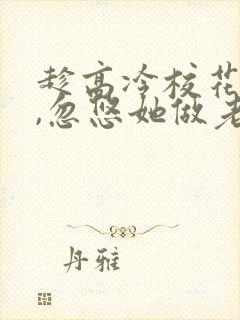 趁高冷校花
,忽悠她做老
丹雅